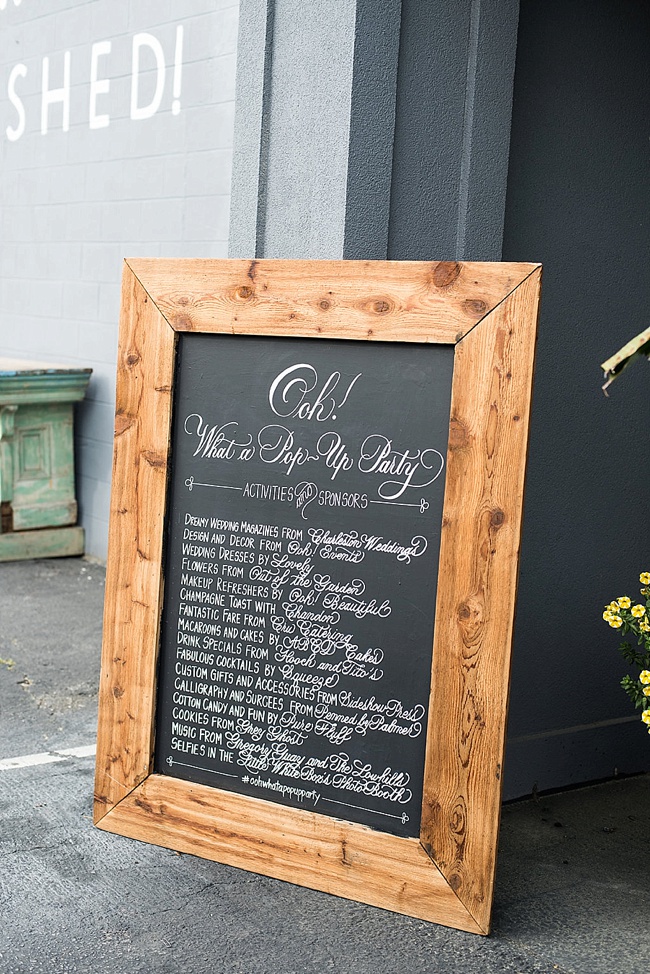 SHED!
Ooh!
What a Pop-Up Party
ACTIVITIES and SPONSORS
DREAMY WEDDING MAGAZINES FROM Charleston Weddings
DESIGN AND DECOR FROM Ooh! Events
WEDDING DRESSES BY Lovely
FLOWERS FROM Out of the Garden
MAKEUP REFRESHERS BY Ooh! Beautiful
CHAMPAGNE TOAST WITH Chandon
FANTASTIC FARE FROM Cru Catering
MACAROONS AND CAKES BY ABCD Cakes
DRINK SPECIALS FROM Hooch and Tito's
FABULOUS COCKTAILS BY Squeeze
CUSTOM GIFTS AND ACCESSORIES FROM Sideshow Press
CALLIGRAPHY AND SURGEES FROM Penned by Palmer
COTTON CANDY AND FUN BY Pure Fluff
COOKIES FROM Grey Ghost
MUSIC FROM Gregory Guay and The Lowhills
SELFIES IN THE Little White Box's Photo Booth
#oohwhatapopupparty